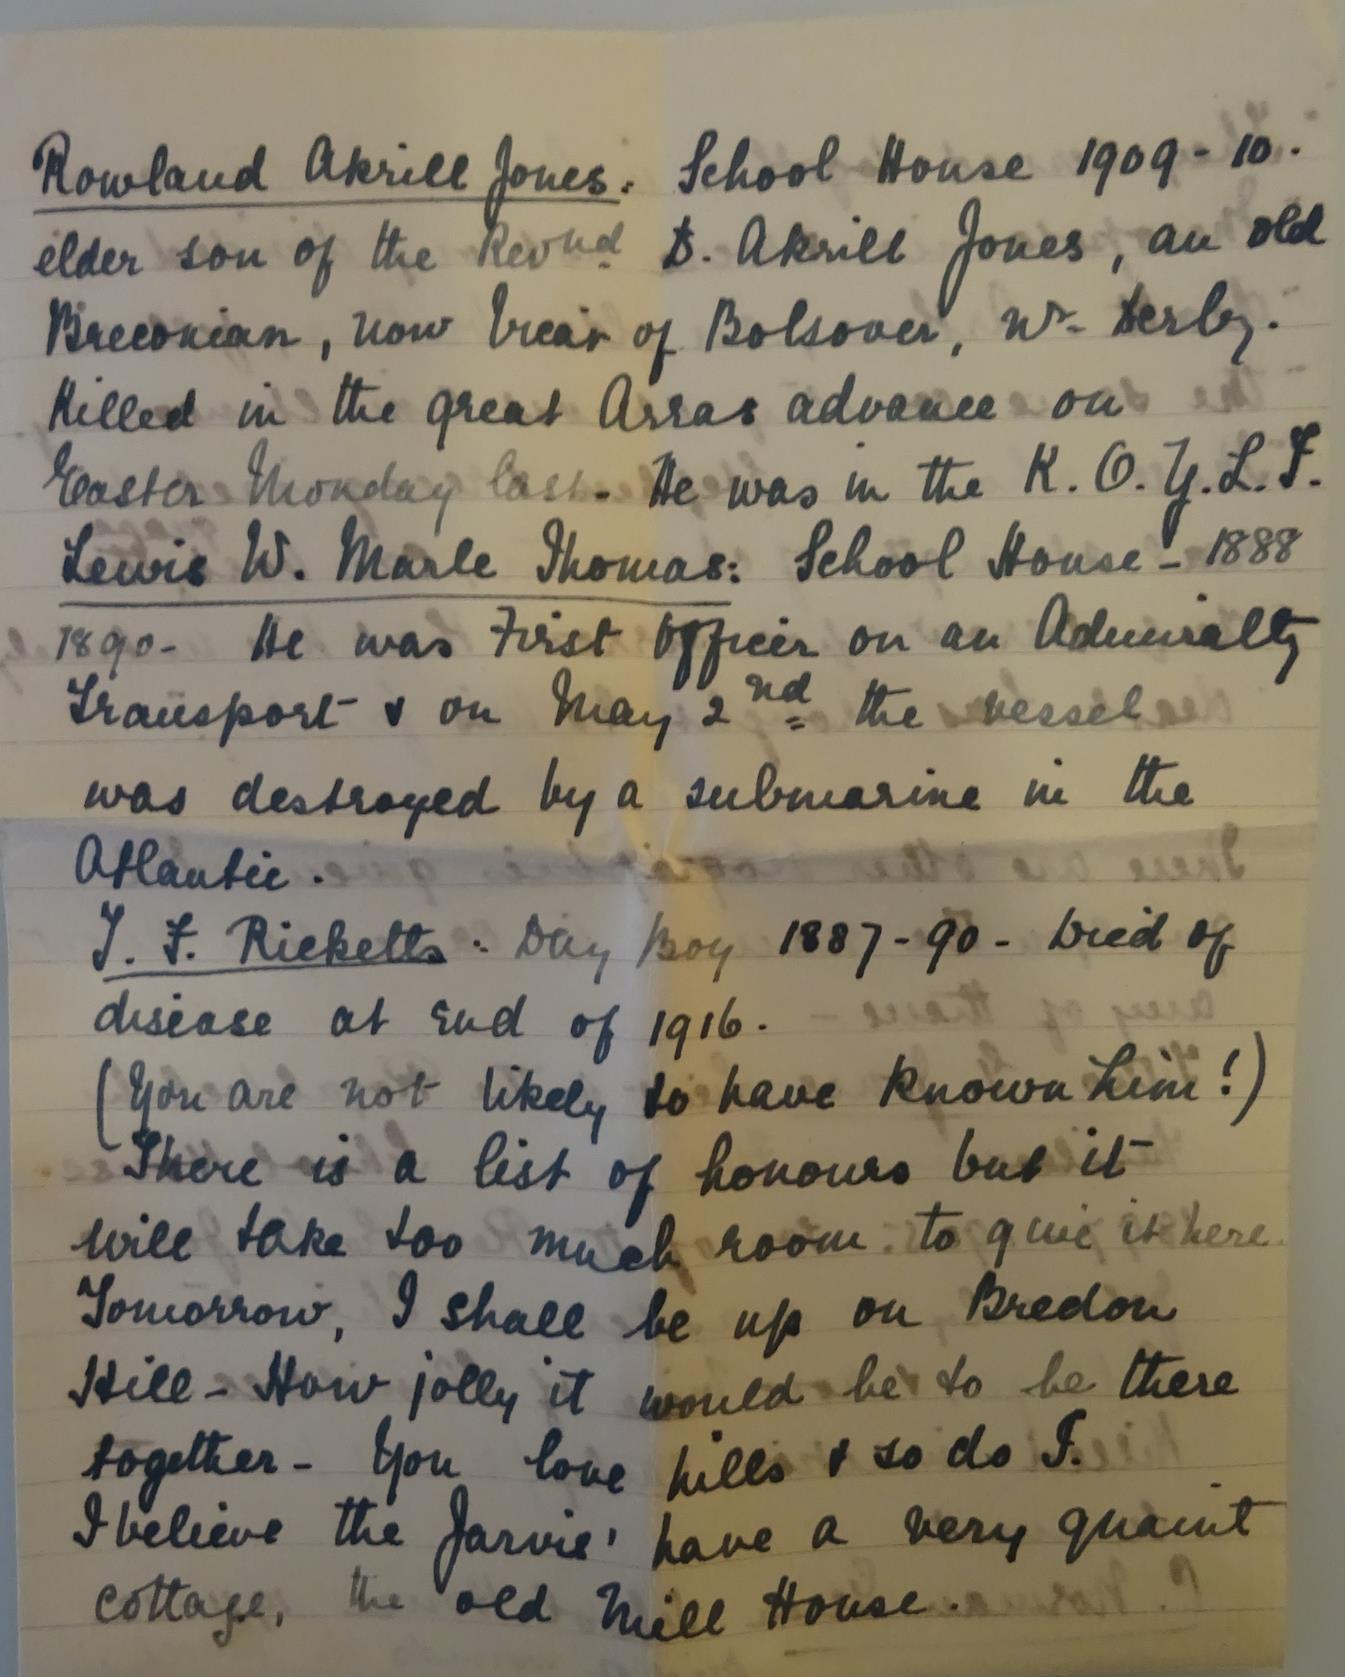 Rowland Akrill Jones. School House 1909-10.
elder son of the Revnd D. Akrill Jones, an old
Breconian, now Vicar of Bolsover, Nr. Derby.
Killed in the great Arras advance on
Easter Monday last. He was in the K.O.Y.L.I.
Lewis W. Marle Thomas: School House - 1888
1890- He was First Officer on an Admiralty
Transport & on May 2nd the vessel
was destroyed by a submarine in the
Atlantic.
T. F. Ricketts. Day Boy 1887-90 - Died of
disease at end of 1916.
(You are not likely to have known him!)
There is a list of honours but it
will take too much room to give it here.
Tomorrow, I shall be up on Bredon
Hill - How jolly it would be to be there
together - You love hills & so do I.
I believe the Jarvis' have a very quaint
cottage, the old Mill House.